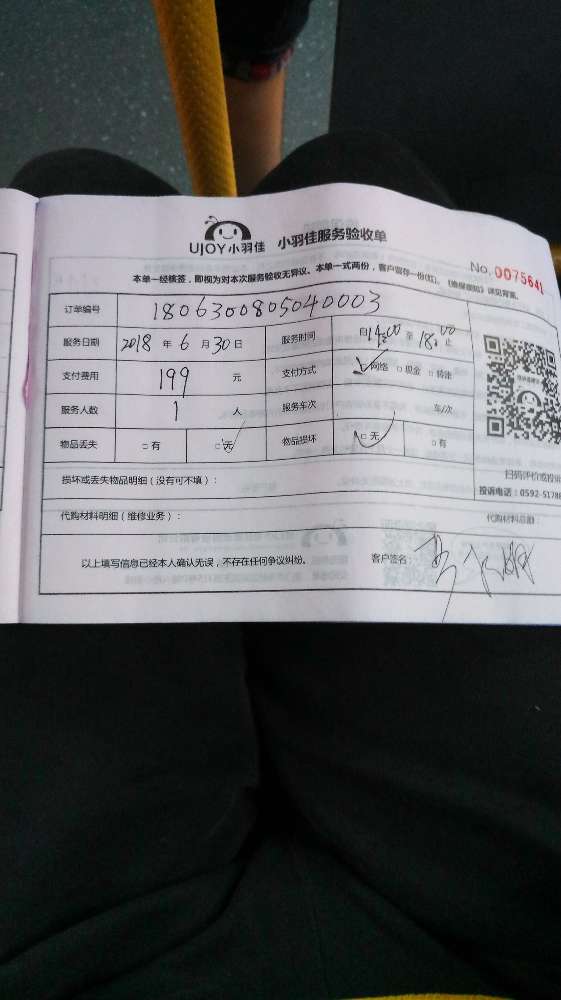 UJOY小羽佳 小羽佳服务验收单
No. 0075641
本单一经核签，即视为对本次服务验收无异议。本单一式两份，客户留存一份(红)。《维保须知》详见背面。
订单编号 1806300805040003
服务日期 2018 年 6 月 30 日 服务时间 自 14:00 至 18:00 止
支付费用 199 元 支付方式 ☑网络 □现金 □转账
服务人数 1 人 服务车次 车/次
物品丢失 □有 ☑无 物品损坏 ☑无 □有
扫码评价或投诉
损坏或丢失物品明细（没有可不填）：
投诉电话：0592-5178
代购材料明细（维修业务）： 代购材料总额：
以上填写信息已经本人确认无误，不存在任何争议纠纷。 客户签名：